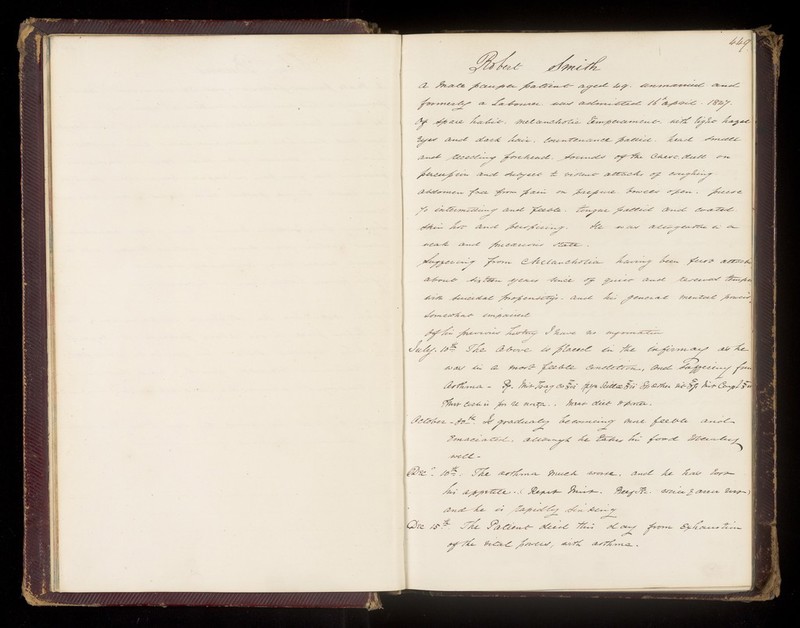 449
Robert Smith
A male pauper patient aged 49. unmarried and
formerly a Labourer was admitted 16th April. 1847.
Of spare habit. melancholic temperament. with light hazel
Eyes and dark hair. countenance pallid. head small
and receeding forehead. sounds of the chest dull on
percussion and subject to violent attacks of coughing
abdomen free from pain on pressure. bowels open. pulse
70 intermitting and feeble. tongue pallid and coated
skin hot and perspiring. He was altogether in a
weak and precarious state.
Suffering from Melancholia having been first attacked
about sixteen years since of quiet and reserved temper
with suicidal propensity. and his general mental powers
somewhat impaired
Of his previous history I have no information
July. 10th The above is placed in the infirmary as he
was in a most feeble condition, and suffering from
Asthma -
October - 10th Is gradually becoming more feeble and
emaciated. although he takes his food tolerably
well -
Decr. 10th. The asthma much worse. and he has lost
his appetite. Repeat Mist. wine
and he is rapidly sinking
Dec 15th The Patient died this day from Exhaustion
of the vital powers, with asthma.